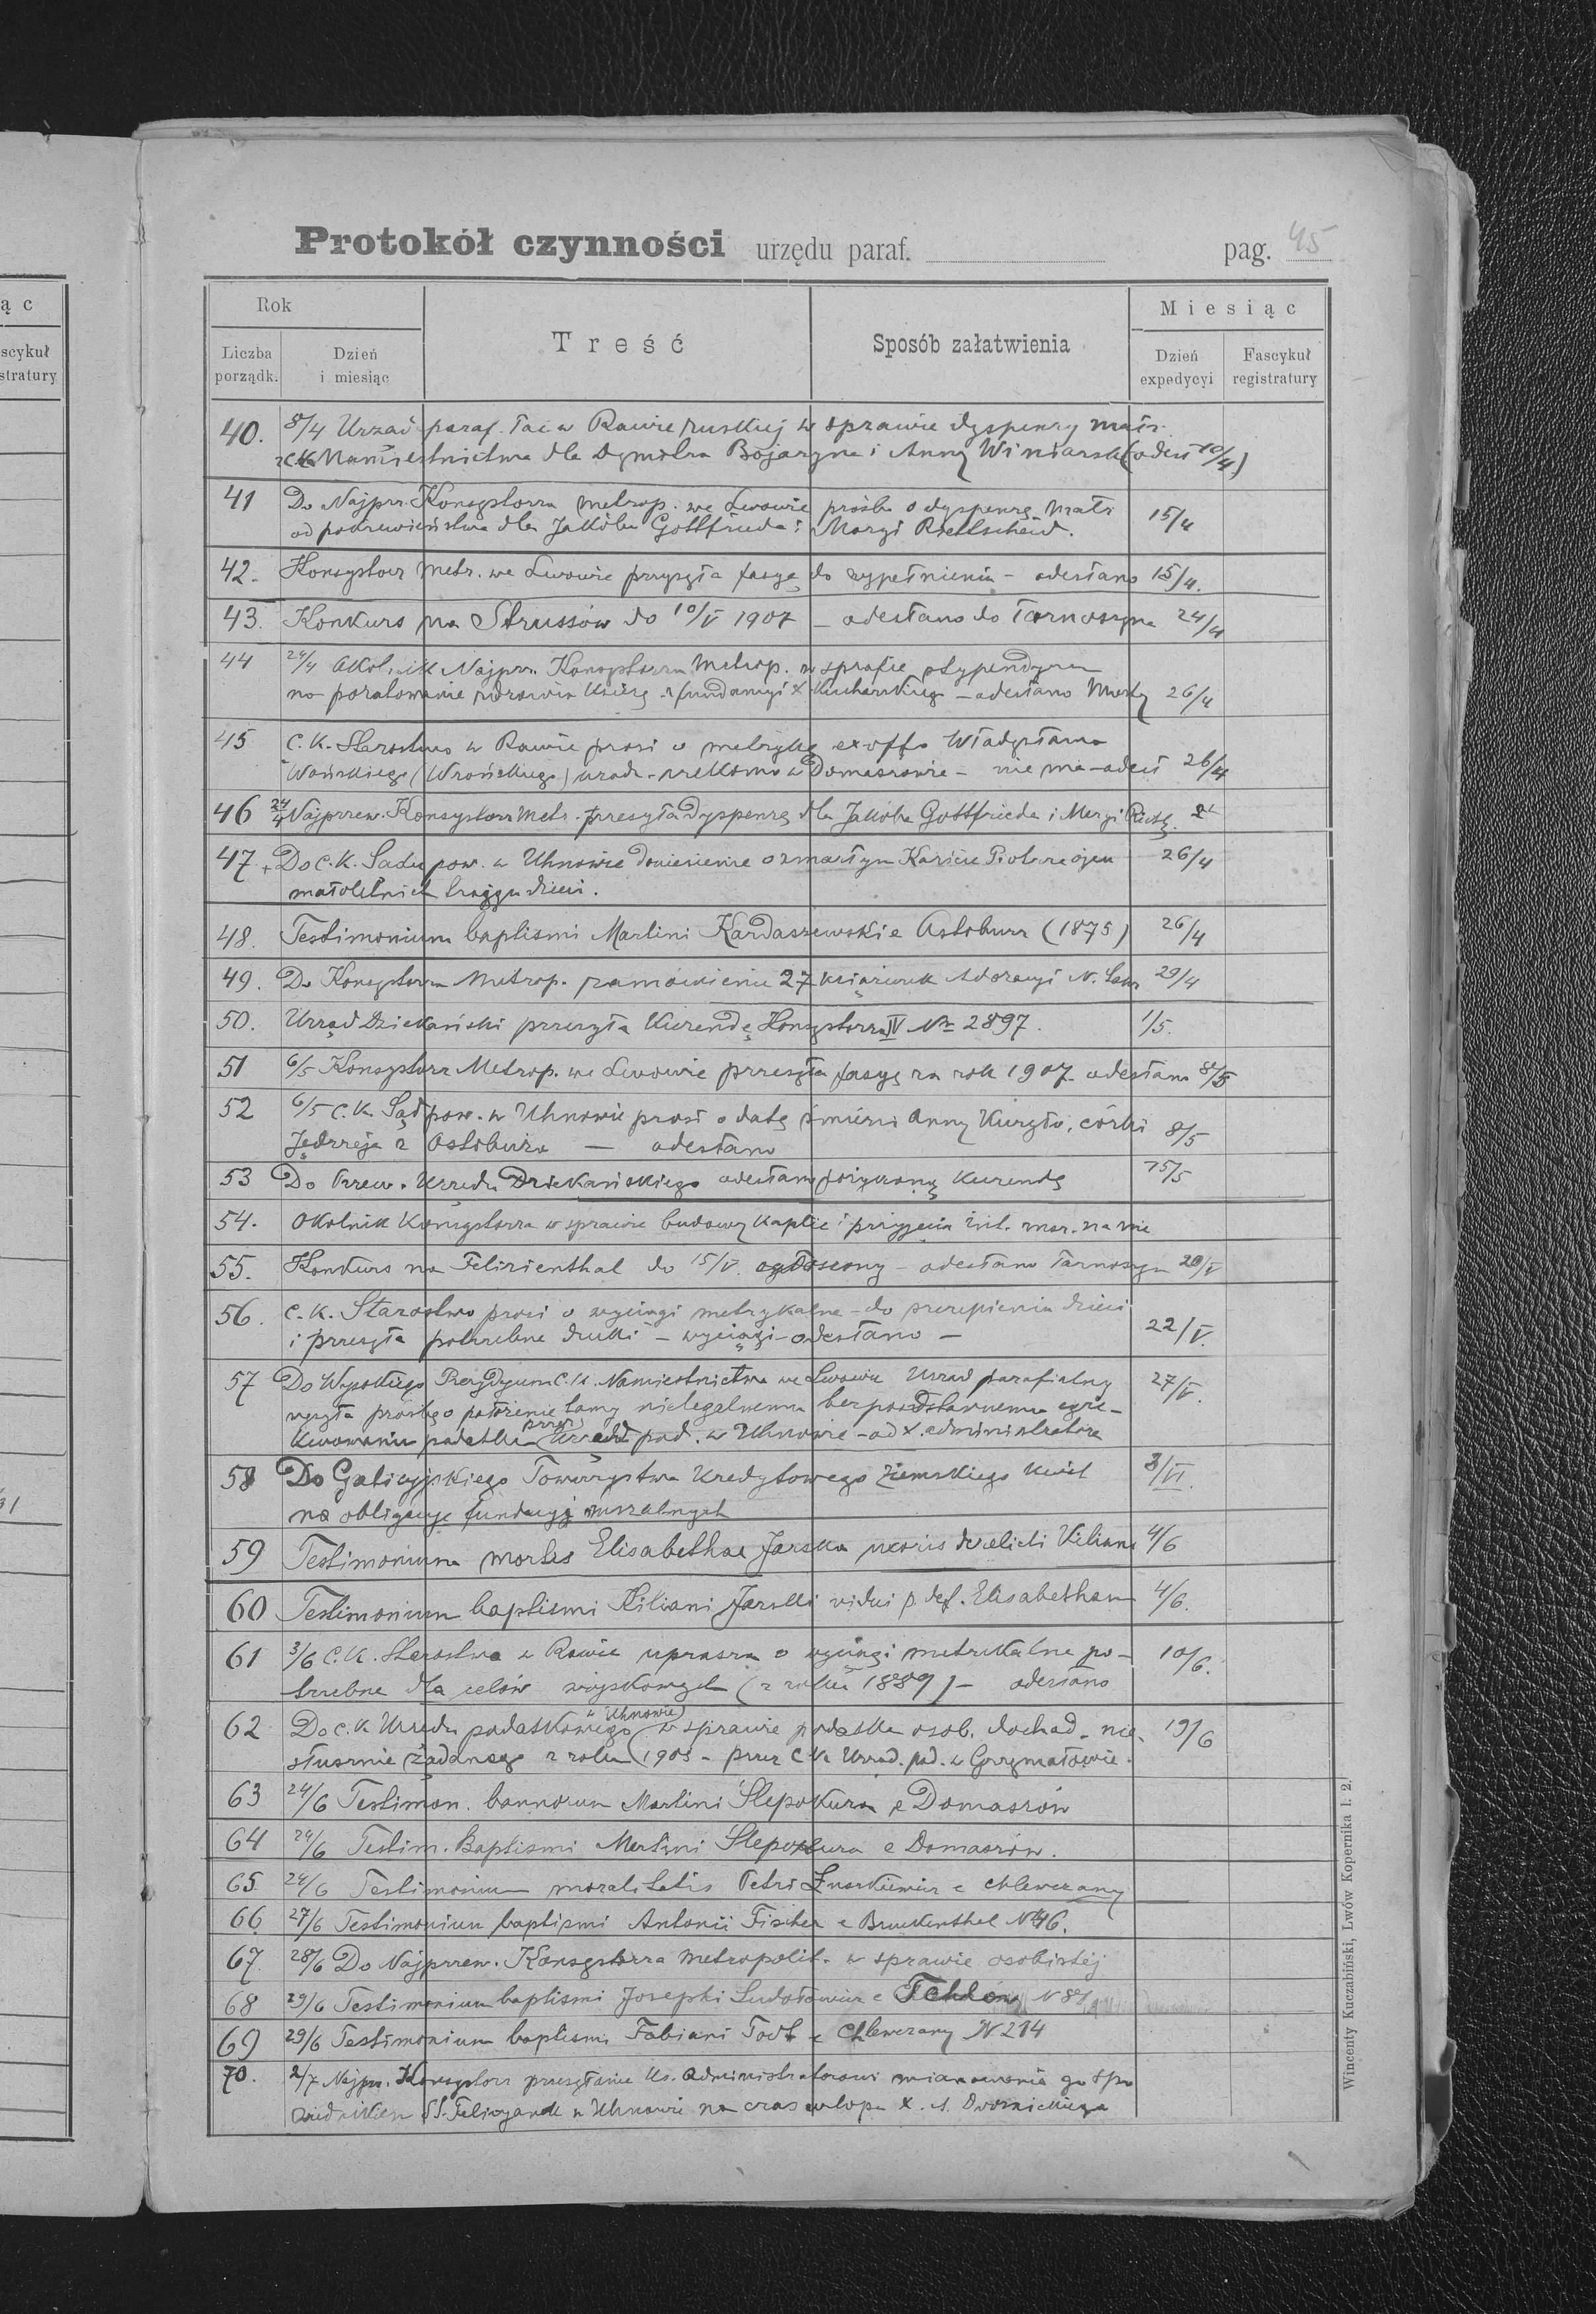 ąc
scykuł
stratury
Protokół czynności urzędu paraf. pag. 45
Rok
Miesiąc
Liczba porządk.
Dzień i miesiąc
Treść
Sposób załatwienia
Dzień expedycyi
Fascykuł registratury
40. 8/4 Urząd paraf. łac w Rawie ruskiej w sprawie dyspenzy matr.
z CK Namiestnictwa dla Dymitra Bojaryna i Anny Winiarsk (odesł 10/4)
41 Do Najprz. Konsystorza metrop. we Lwowie prośba o dyspenzę matr
od pokrewieństwa dla Jakóba Gottfrieda i Maryi Rietlscheid. 15/4
42. Konsystorz Metr. we Lwowie przysyła fasyę do wypełnienia - odesłano 15/4.
43. Konkurs na Strussów do 10/V 1907 - odesłano do Tarnoszyna 24/4
44 24/4 Okólnik Najprz. Konsystorza Metrop. w sprafie stypendyum
na poratowanie zdrowia księży z fundacyi X Kucharskiego - odesłano Mosty 26/4
45 C.K. Starostwo w Rawie prosi o metrykę ex offo Władysława
Wońskiego (Wrońskiego) urodz. rzekomo w Domaszowie - nie ma - odesł 26/4
46 24/4 Najprzew. Konsystorz Metr. przesyła Dyspenzę dla Jakóba Gottfrieda i Maryi Rietlz.
47 Do C.K. Sądu pow. w Uhnowie doniesienie o zmarłym Karście Piotrze ojcu 26/4
małoletnich trojgu dzieci.
48. Testimonium baptismi Martini Kardaszewski e Ostobuż (1875) 26/4
49. Do Konsystorza Metrop. zamówienie 27 książeczek Adoracyi N. Sakr 29/4
50. Urząd Dziekański przesyła Kurendę Konsystorza IV № 2897. 1/5.
51 6/5 Konsystorz Metrop. we Lwowie przesyła fasyę za rok 1907. odesłano 8/5
52 6/5 C.K. Sąd pow. w Uhnowie prosi o datę śmierci Anny Kuryło, córki
Jędrzeja z Ostobuża — odesłano 8/5
53 Do Przew. Urzędu Dziekańskiego odesłano pożyczoną Kurendę 15/5
54. Okólnik Konsystorza w sprawie budowy kaplic i przyjęcia na nie
55. Konkurs na Felizienthal do 15/V. ogłoszony - odesłano Tarnoszyn 20/V
56. C.K. Starostwo prosi o wyciągi metrykalne - do szczepienia dzieci
i przesyła potrzebne druki - wyciągi - odesłano - 22/V.
57 Do Wysokiego Prezydyum C.K. Namiestnictwa we Lwowie Urząd parafialny 27/V.
wysyła prośbę o położenie tamy nielegalnemu bezpodstawnemu egze-
kwowaniu podatku (przez) Urząd pod. w Uhnowie - od X. administratora
58 Do Galicyjskiego Towarzystwa Kredytowego Ziemskiego kwit 3/VI.
na obligacye fundacyj mszalnych
59 Testimonium mortis Elisabethae Jarska uxoris derelicti Kiliani 4/6
60 Testimonium baptismi Kiliani Jarski vidui p. def. Elisabetham 4/6.
61 3/6 C.K. Starostwo w Rawie uprasza o wyciągi metrykalne po- 10/6.
trzebne dla celów wojskowych (z roku 1889) - odesłano
62 Do C.K. Urzędu podatkowego (w Uhnowie) w sprawie podatku osob. dochod. nie- 19/6
słusznie żądanego z roku 1903 - przez C.K. Urząd. pod. w Grzymałowie.
63 24/6 Testimon. bannorum Martini Ślepokura e Domaszów
64 24/6 Testim. Baptismi Martini Ślepokura e Domaszów.
65 24/6 Testimonium moralitatis Petri Łuszkiewicz e Chlewczany
66 27/6 Testimonium baptismi Antonii Fischer e Bruckenthal N 46.
67. 28/6 Do Najprzew. Konsystorza Metropolit. w sprawie osobistej
68 29/6 Testimonium baptismi Josephi e N 81
69 29/6 Testimonium baptismi Fabiani Todt e Chlewczany N 214
70. 2/7 Najprz. Konsystorz przesyłanie ks. administratorowi mianowania go spo
wiednikiem SS. Felicyanek w Uhnowie na czas urlopu X. A. Dwornickiego
Wincenty Kuczabiński, Lwów Kopernika l. 2.